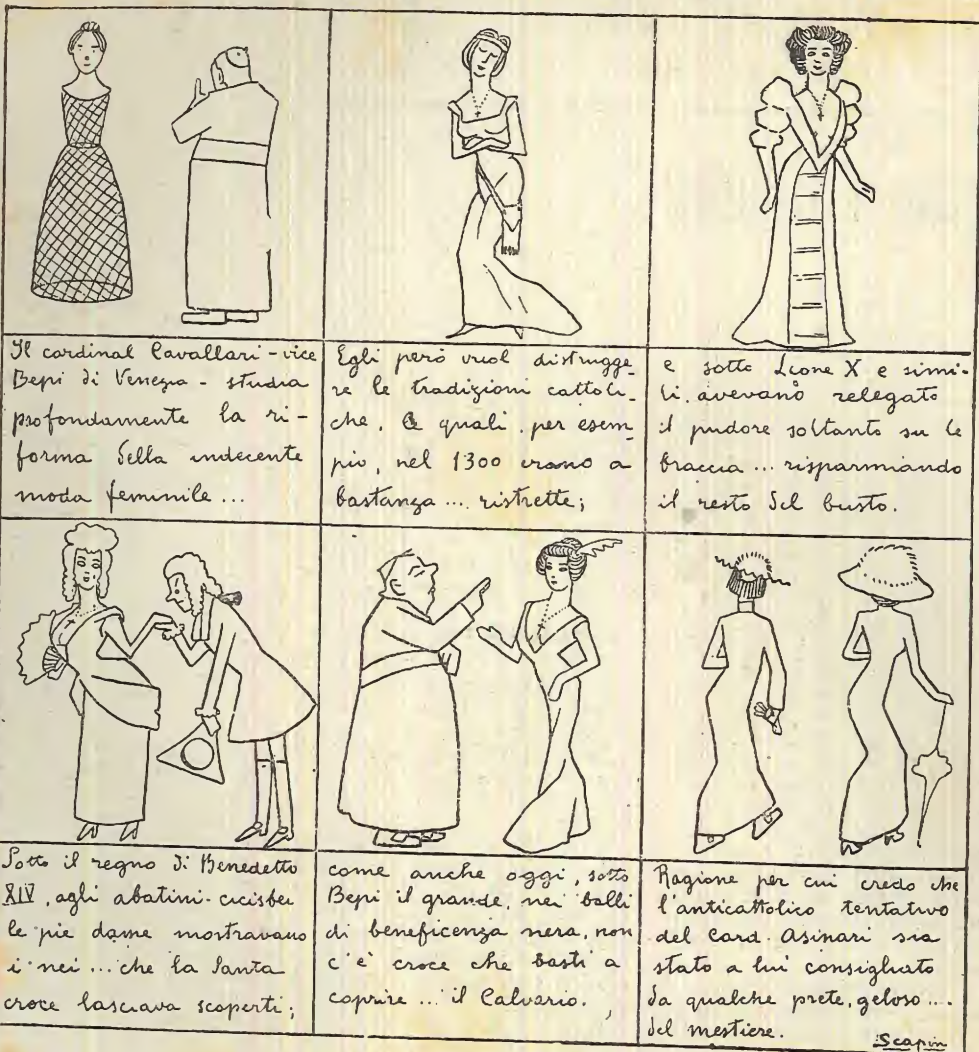 Il cardinal Cavallari - vice
Bepi di Venezia - studia
profondamente la ri-
forma della indecente
moda feminile ...
Egli però vuol distrugge-
re le tradizioni cattoli-
che. Le quali, per esem-
pio, nel 1300 erano a
bastanza .... ristrette;
e sotto Leone X e simi-
li, avevano relegato
il pudore soltanto su le
braccia ... risparmiando
il resto del busto.
Sotto il regno di Benedetto
XIV, agli abatini-cicisbei
le pie dame mostravano
i nei ... che la Santa
croce lasciava scoperti;
come anche oggi, sotto
Bepi il grande, nei balli
di beneficenza nera, non
c'è croce che basti a
coprire ... il Calvario.
Ragione per cui credo che
l'anticattolico tentativo
del Card. Asinari sia
stato a lui consigliato
da qualche prete, geloso ....
del mestiere.
Scapin